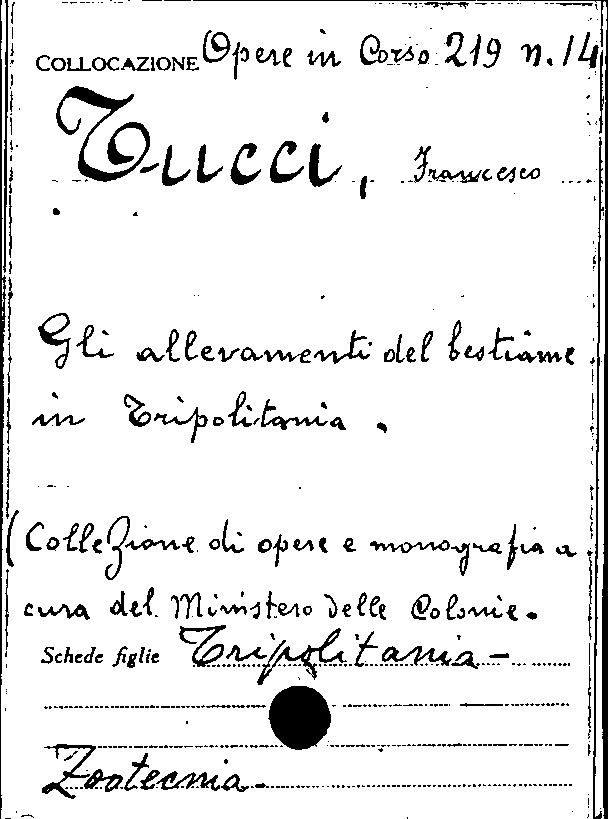 COLLOCAZIONE Opere in Corso 219 n. 14
Tucci, Francesco
Gli allevamenti del bestiame
in Tripolitania.
(Collezione di opere e monografia a
cura del Ministero delle Colonie.
Schede figlie Tripolitania -
Zootecnia -